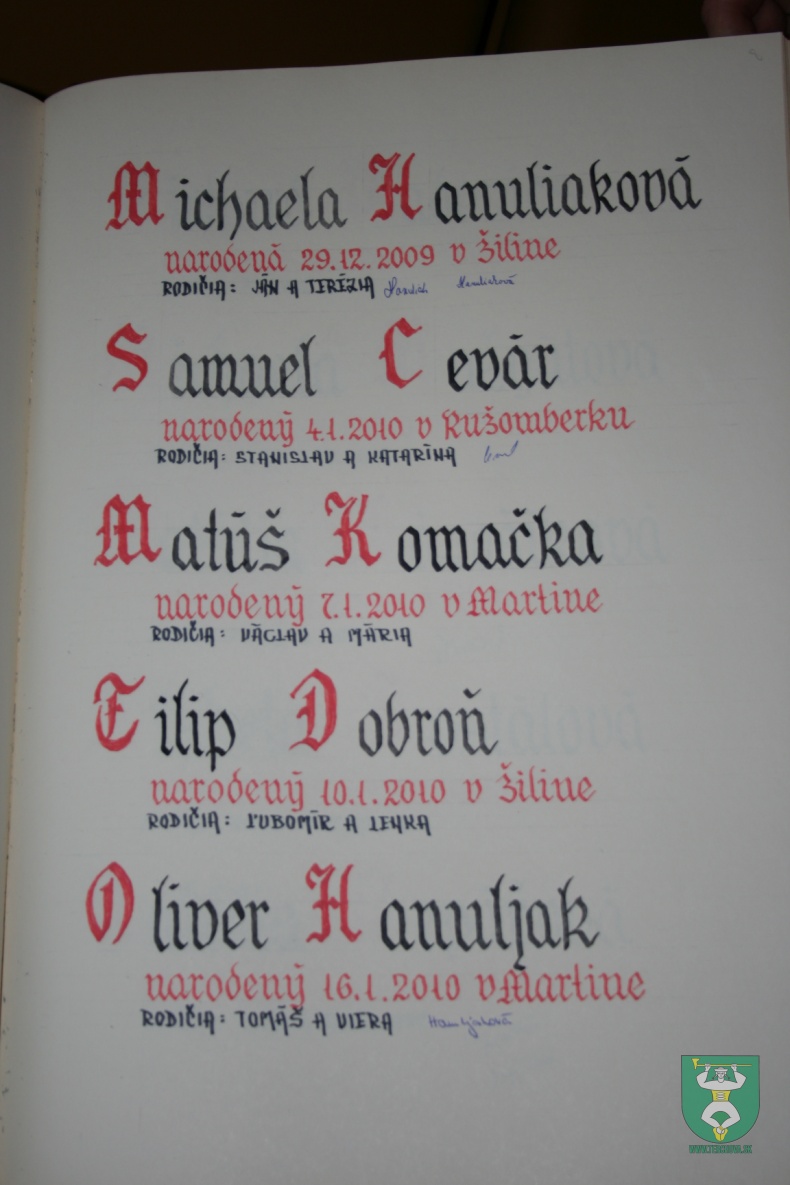 Michaela Hanuliaková
narodená 29.12.2009 v Žiline
RODIČIA: JÁN A TERÉZIA Hanuliaková
Samuel Cevár
narodený 4.1.2010 v Ružomberku
RODIČIA: STANISLAV A KATARÍNA
Matúš Komačka
narodený 7.1.2010 v Martine
RODIČIA: VÁCLAV A MÁRIA
Filip Dobroň
narodený 10.1.2010 v Žiline
RODIČIA: ĽUBOMÍR A LENKA
Oliver Hanuljak
narodený 16.1.2010 v Martine
RODIČIA: TOMÁŠ A VIERA Hanuljaková
WWW.TERCHOVA.SK